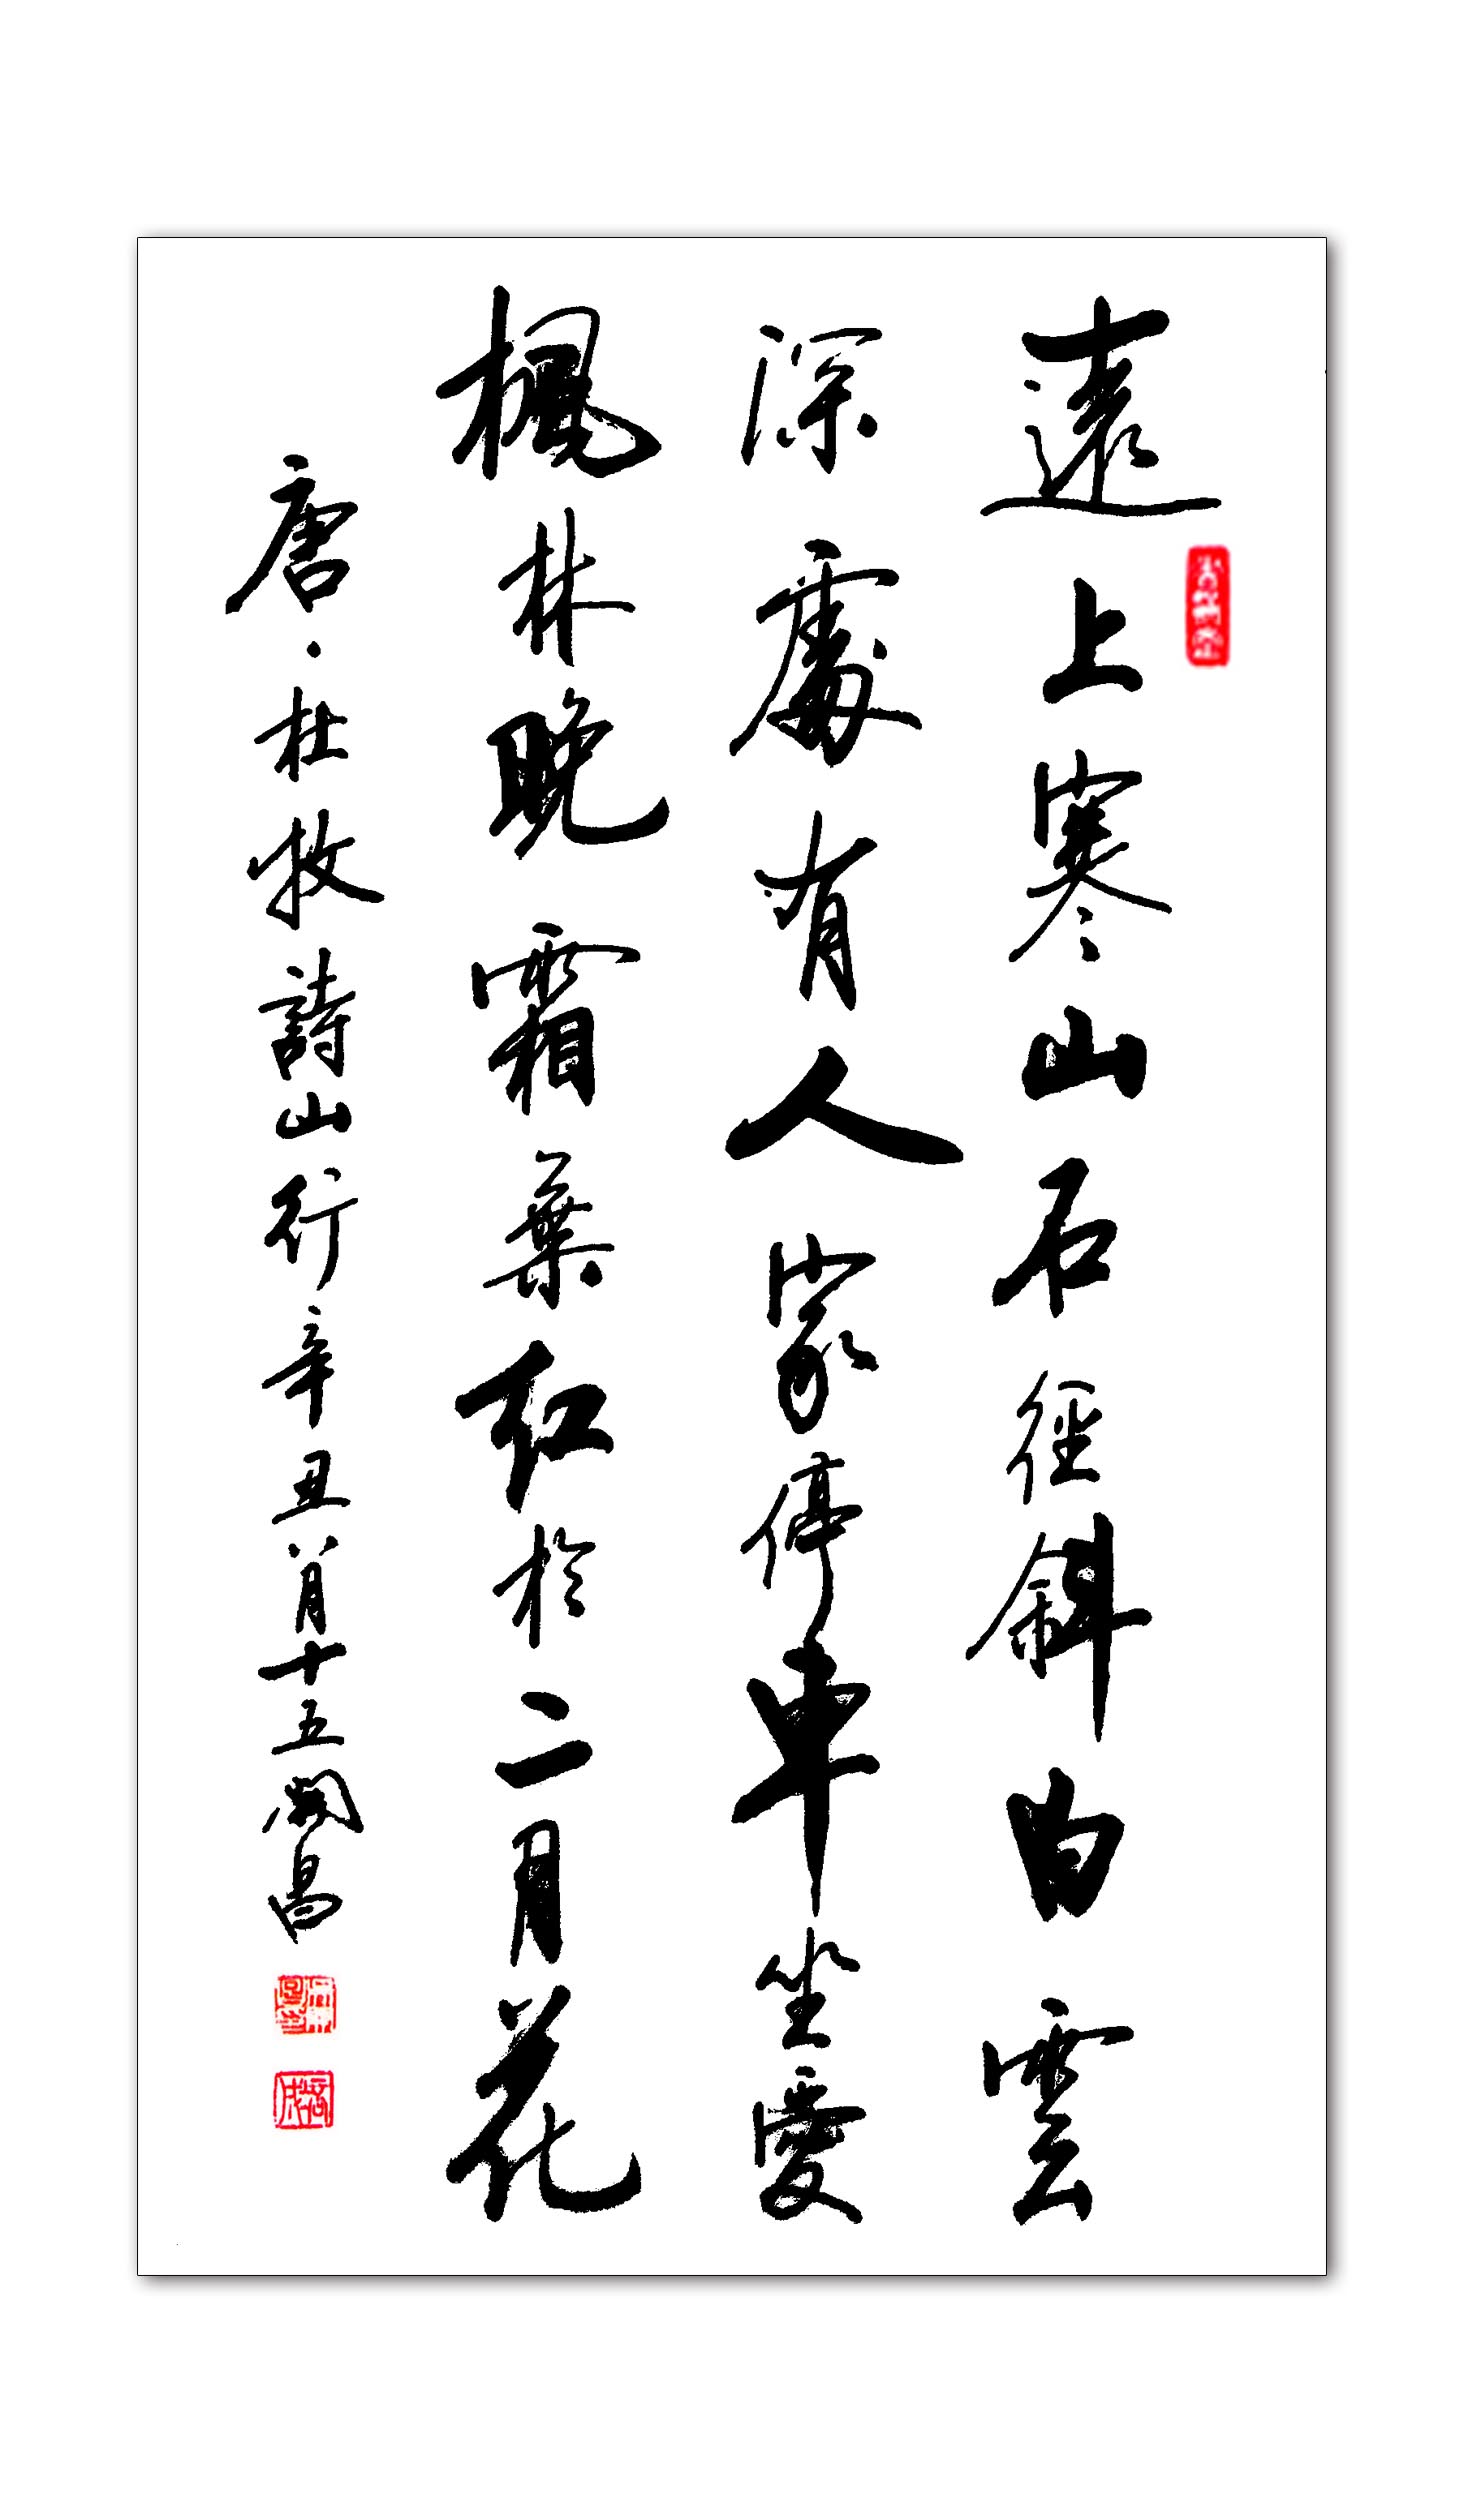 遠上寒山石徑斜白雲
深處有人家停車坐愛
楓林晚霜葉紅於二月花
唐·杜牧詩山行辛丑八月十五開昌